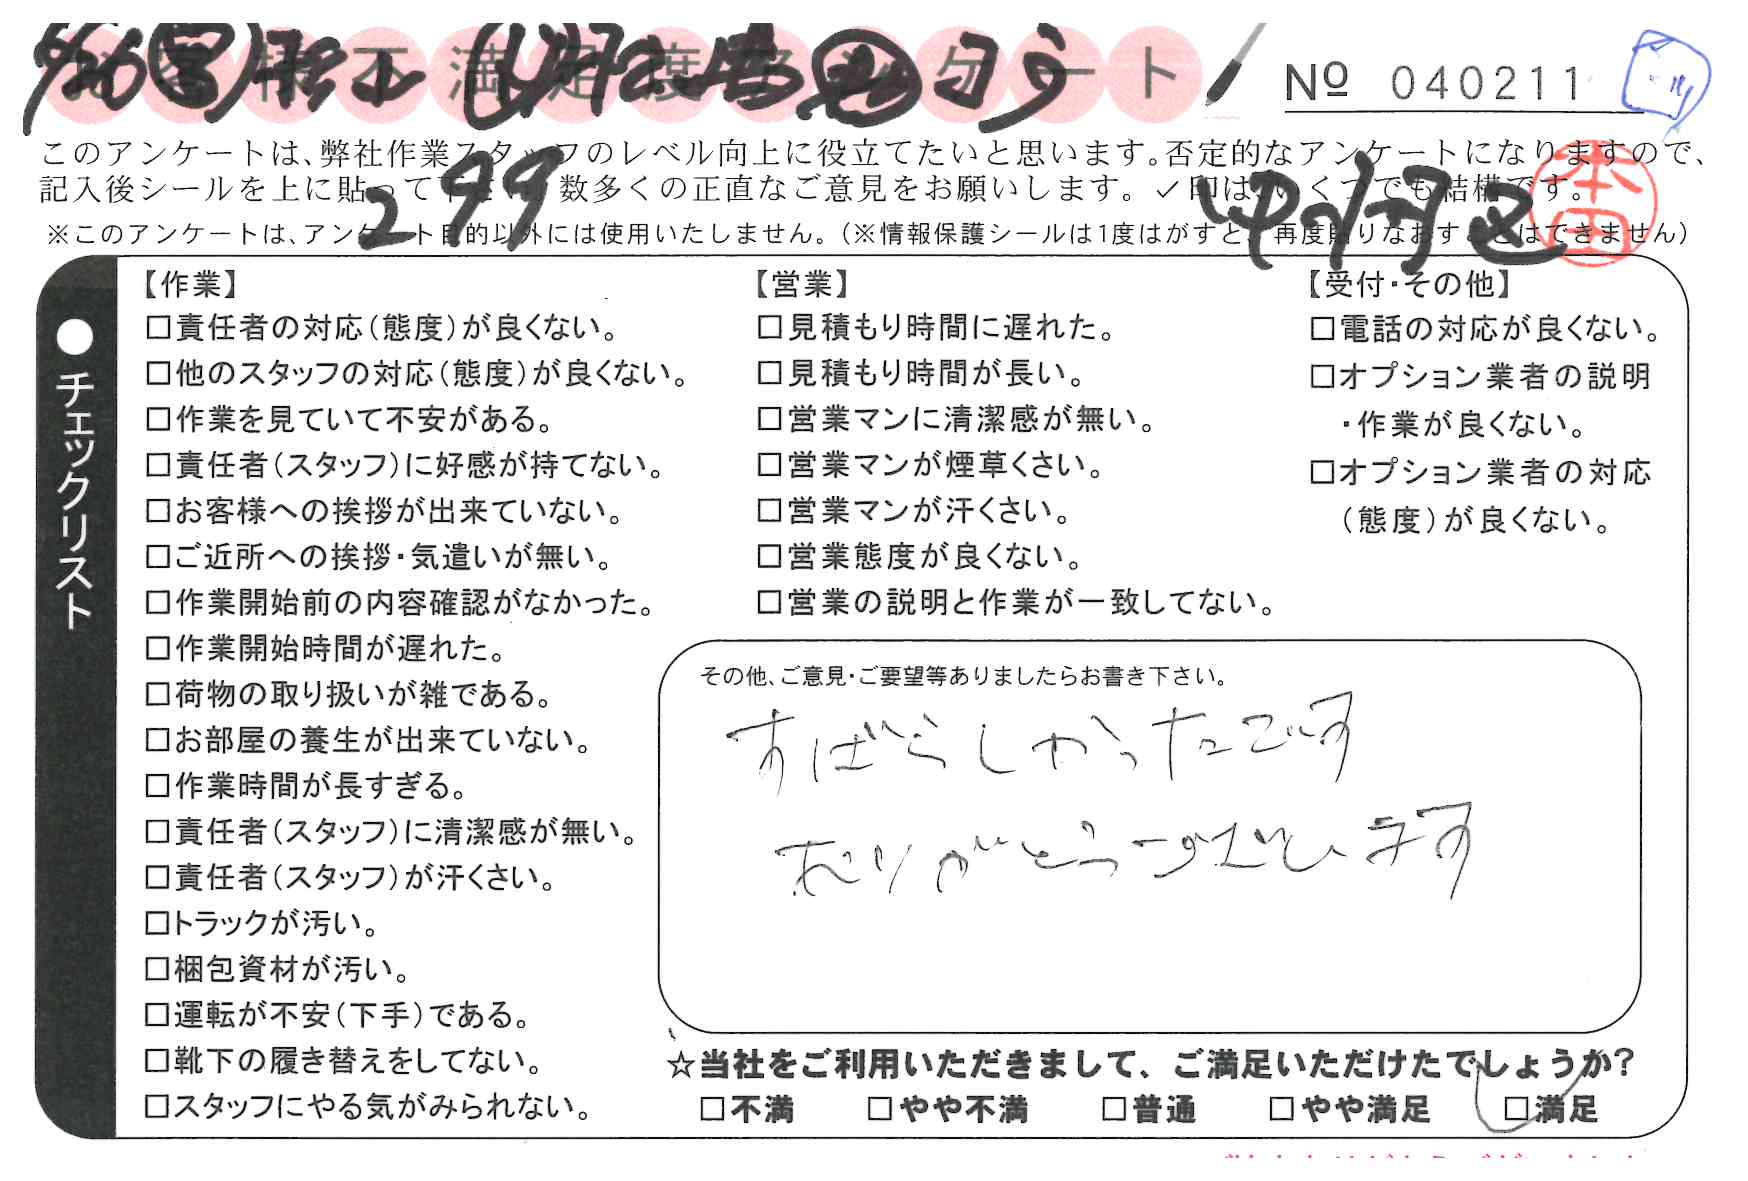 お客様不満足度アンケート
№ 040211
このアンケートは、弊社作業スタッフのレベル向上に役立てたいと思います。否定的なアンケートになりますので、
記入後シールを上に貼って下さい。数多くの正直なご意見をお願いします。✓印はいくつでも結構です。
299
※このアンケートは、アンケート目的以外には使用いたしません。（※情報保護シールは1度はがすと、再度貼りなおすことはできません）
本田
●チェックリスト
【作業】
□責任者の対応（態度）が良くない。
□他のスタッフの対応（態度）が良くない。
□作業を見ていて不安がある。
□責任者（スタッフ）に好感が持てない。
□お客様への挨拶が出来ていない。
□ご近所への挨拶・気遣いが無い。
□作業開始前の内容確認がなかった。
□作業開始時間が遅れた。
□荷物の取り扱いが雑である。
□お部屋の養生が出来ていない。
□作業時間が長すぎる。
□責任者（スタッフ）に清潔感が無い。
□責任者（スタッフ）が汗くさい。
□トラックが汚い。
□梱包資材が汚い。
□運転が不安（下手）である。
□靴下の履き替えをしてない。
□スタッフにやる気がみられない。
【営業】
□見積もり時間に遅れた。
□見積もり時間が長い。
□営業マンに清潔感が無い。
□営業マンが煙草くさい。
□営業マンが汗くさい。
□営業態度が良くない。
□営業の説明と作業が一致してない。
【受付・その他】
□電話の対応が良くない。
□オプション業者の説明
・作業が良くない。
□オプション業者の対応
（態度）が良くない。
その他、ご意見・ご要望等ありましたらお書き下さい。
すばらしかったです
ありがとうございます
☆当社をご利用いただきまして、ご満足いただけたでしょうか？
□不満 □やや不満 □普通 □やや満足 □満足